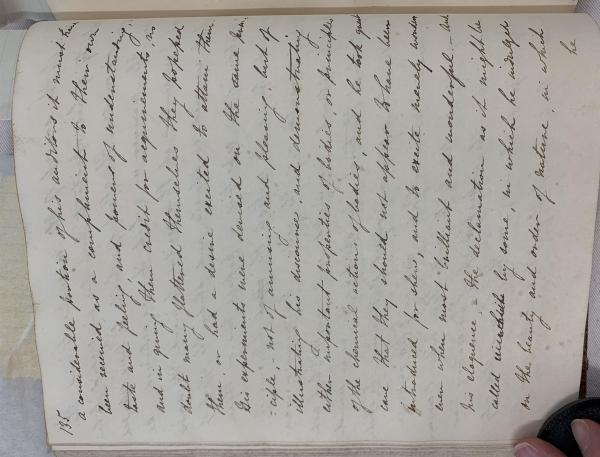 135
a considerable portion of his auditors it must have
been received as a compliment to their own
taste and feeling and powers of understanding,
and in giving them credit for acquirements, no
doubt many flattered themselves they possessed
them, or had a desire excited to attain them.
His experiments were devised on the same prin
-ciple, not of amusing and pleasing, but of
illustrating his discourses and demonstrating
either important properties of bodies, or principles
of the chemical actions of bodies; and he took great
care that they should not appear to have been
introduced for shew, and to excite merely wonder
even when most brilliant and wonderful. And
his eloquence, – the declamation as it might be
called by some, in which he indulged
on the beauty and order of nature, in which
he